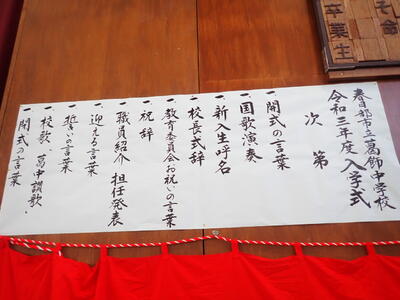 春日部市立葛飾中学校
令和三年度 入学式
次第
一、開式の言葉
一、国歌演奏
一、新入生呼名
一、校長式辞
一、教育委員会お祝いの言葉
一、祝辞
一、職員紹介 担任発表
一、迎える言葉
一、誓いの言葉
一、校歌、葛中讃歌、
一、閉式の言葉
卒業生